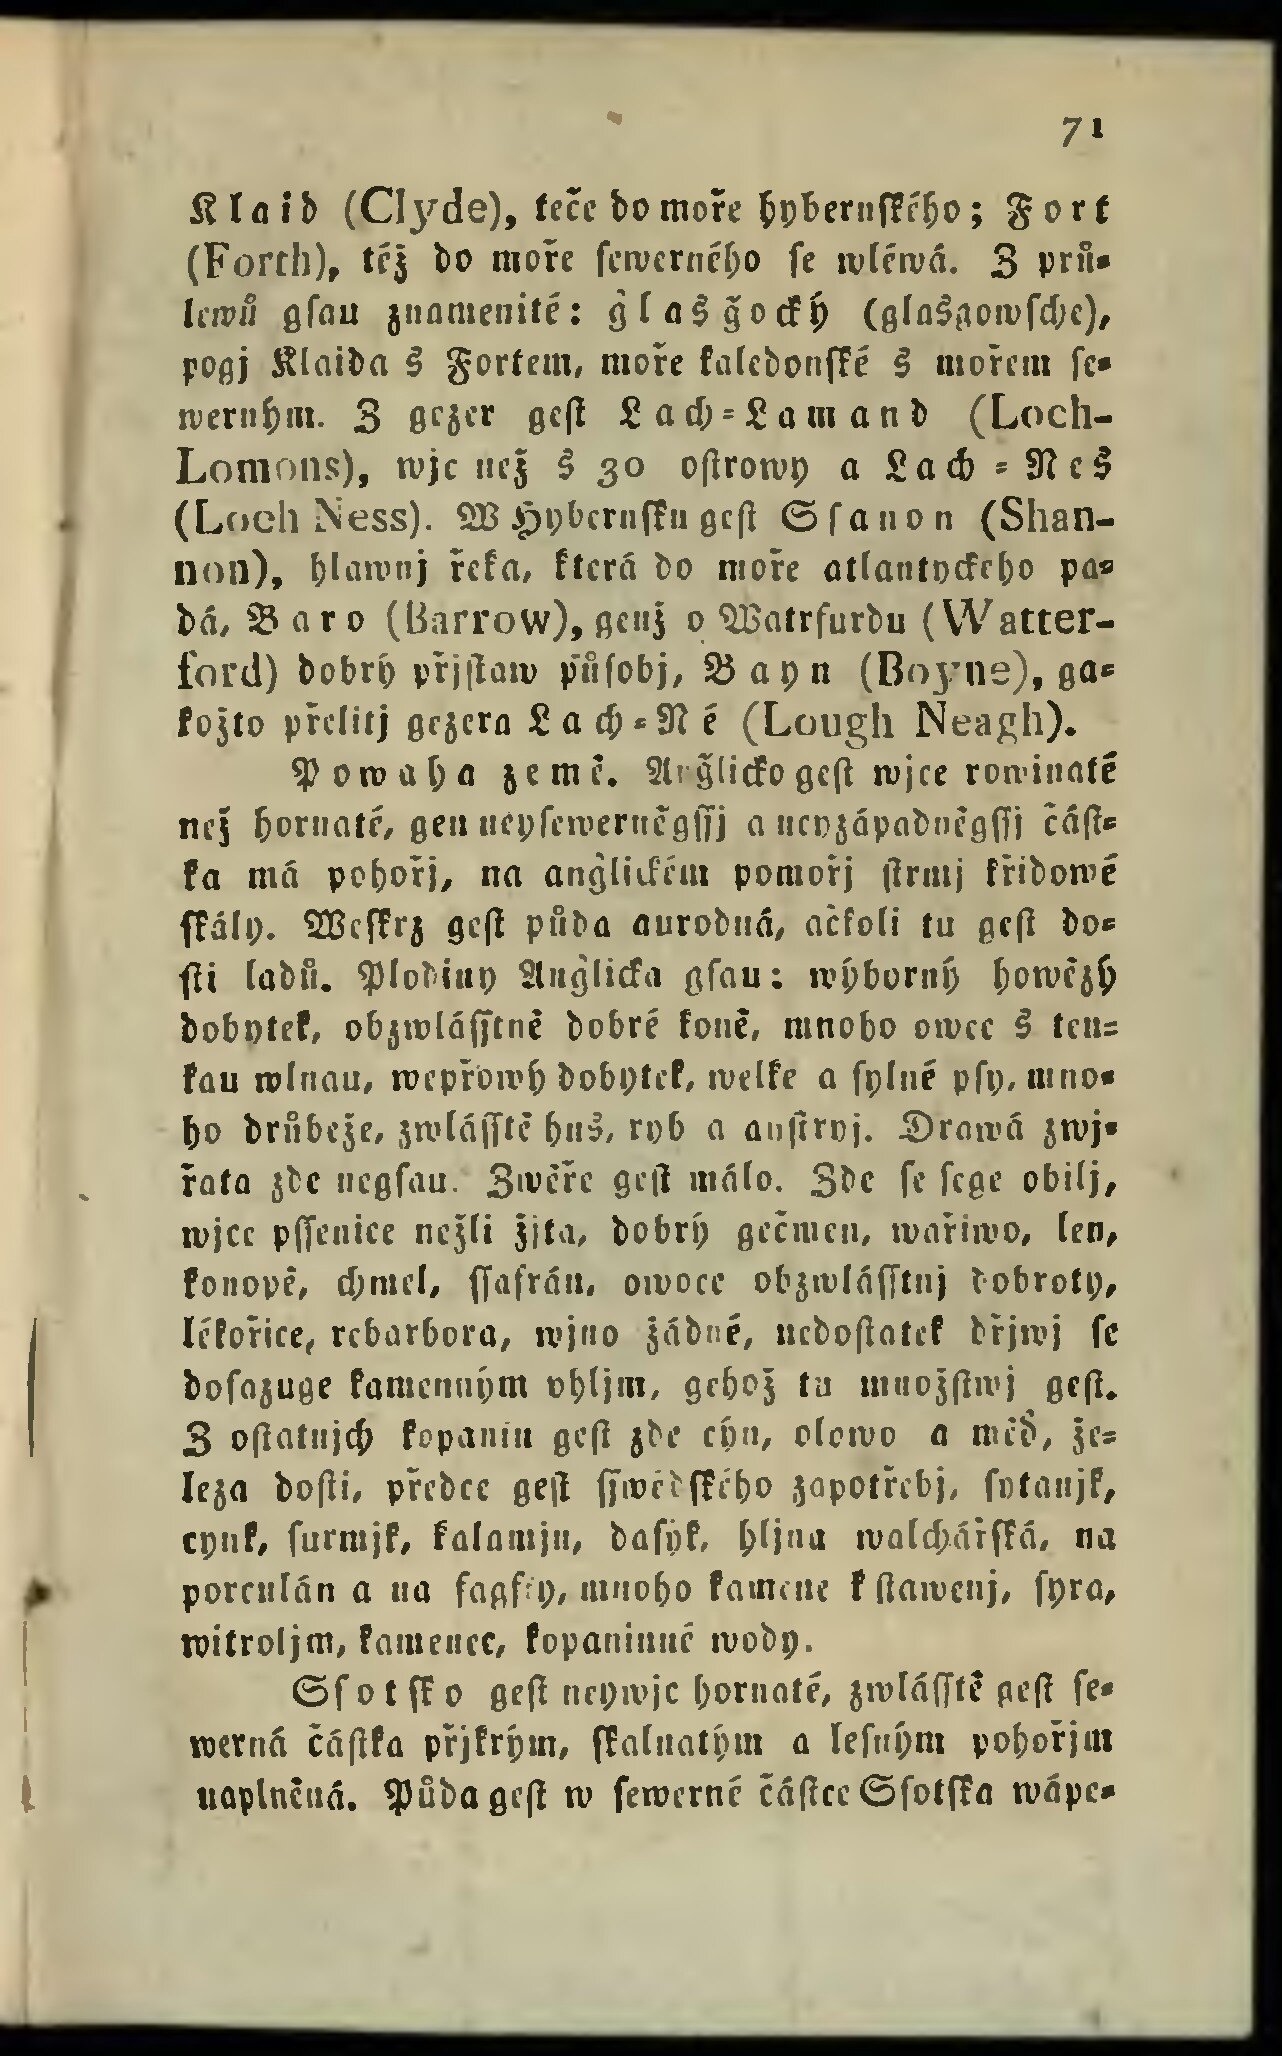 71
Klaid (Clyde), teče do moře hybernſkého; Fort
(Forth), též do moře ſewerného ſe wléwá. Z prů-
lewů gſau znamenité: ğlasğocký (glasgowſche),
pogj Klaida s Fortem, moře kaledonſké s mořem ſe-
werným. Z gezer geſt Lach-Lamand (Loch-
Lomons), wjc než s 30 oſtrowy a Lach-Nes
(Loch Ness). W Hybernſku geſt Sſanon (Shan-
non), hlawnj řeka, která do moře atlantyckeho pa-
dá, Baro (Barrow), genž o Watrfurdu (Watter-
ford) dobrý přjſtaw půſobj, Bayn (Boyne), ga-
kožto přelitj gezera Lach-Né (Lough Neagh).
Powaha země. Anğlicko geſt wjce rowinaté
než hornaté, gen neyſewerněgſſj a neyzápadněgſſj čáſt-
ka má pohořj, na anğlickém pomořj ſtrmj křidowé
ſkály. Weſkrz geſt půda aurodná, ačkoli tu geſt do-
ſti ladů. Plodiny Anğlicka gſau: wýborný howězý
dobytek, obzwláſſtně dobré koně, mnoho owec s ten-
kau wlnau, wepřowý dobytek, welke a ſylné pſy, mno-
ho drůbeže, zwláſſtě hus, ryb a auſtryj. Drawá zwj-
řata zde negſau. Zwěře geſt málo. Zde ſe ſege obilj,
wjce pſſenice nežli žjta, dobrý gečmen, wařiwo, len,
konopě, chmel, ſſafrán, owoce obzwláſſtnj dobroty,
lékořice, rebarbora, wjno žádné, nedoſtatek dřjwj ſe
doſazuge kamenným vhljm, gehož tu množſtwj geſt.
Z oſtatnjch kopanin geſt zde cýn, olowo a měď, že-
leza doſti, předce geſt ſſwédſkého zapotřebj, ſytanjk,
cynk, ſurmjk, kalamjn, daſyk, hljna walchářſká, na
porculán a na fagfry, mnoho kamene k ſtawenj, ſyra,
witroljm, kamenec, kopaninné wody.
Sſotſko geſt neywjc hornaté, zwláſſtě geſt ſe-
werná čáſtka přjkrým, ſkalnatým a leſným pohořjm
naplněná. Půda geſt w ſewerné čáſtce Sſotſka wápe-